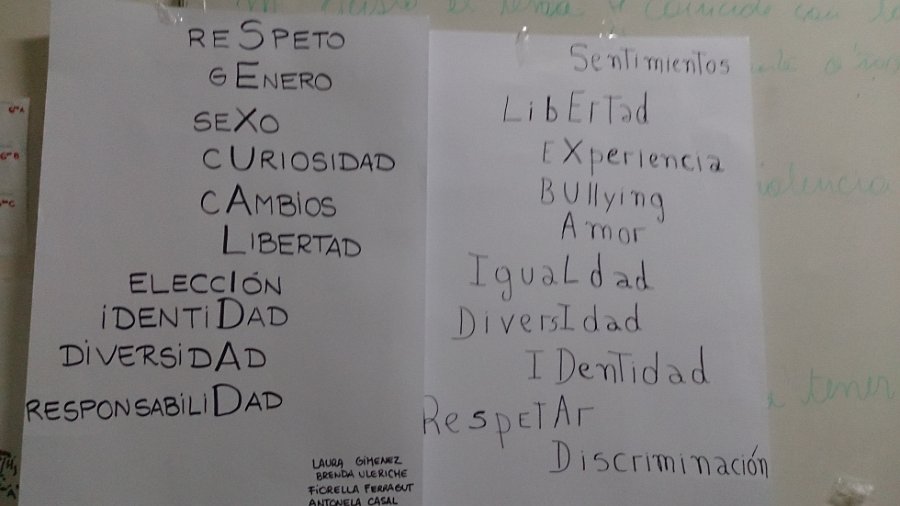 mi gusto el tema y coincido con la
RESPETO
GENERO
SEXO
CURIOSIDAD
CAMBIOS
LIBERTAD
ELECCIÓN
iDENTiDAD
DiVERSiDAD
RESPONSABiLiDAD
LAURA GIMENEZ
BRENDA ULERICHE
FIORELLA FERRAGUT
ANTONELA CASAL
Sentimientos
LibErTad
EXperiencia
BUllying
Amor
IguaLdad
DiversIdad
IDentidad
RespeTAr
Discriminación
violencia
tener